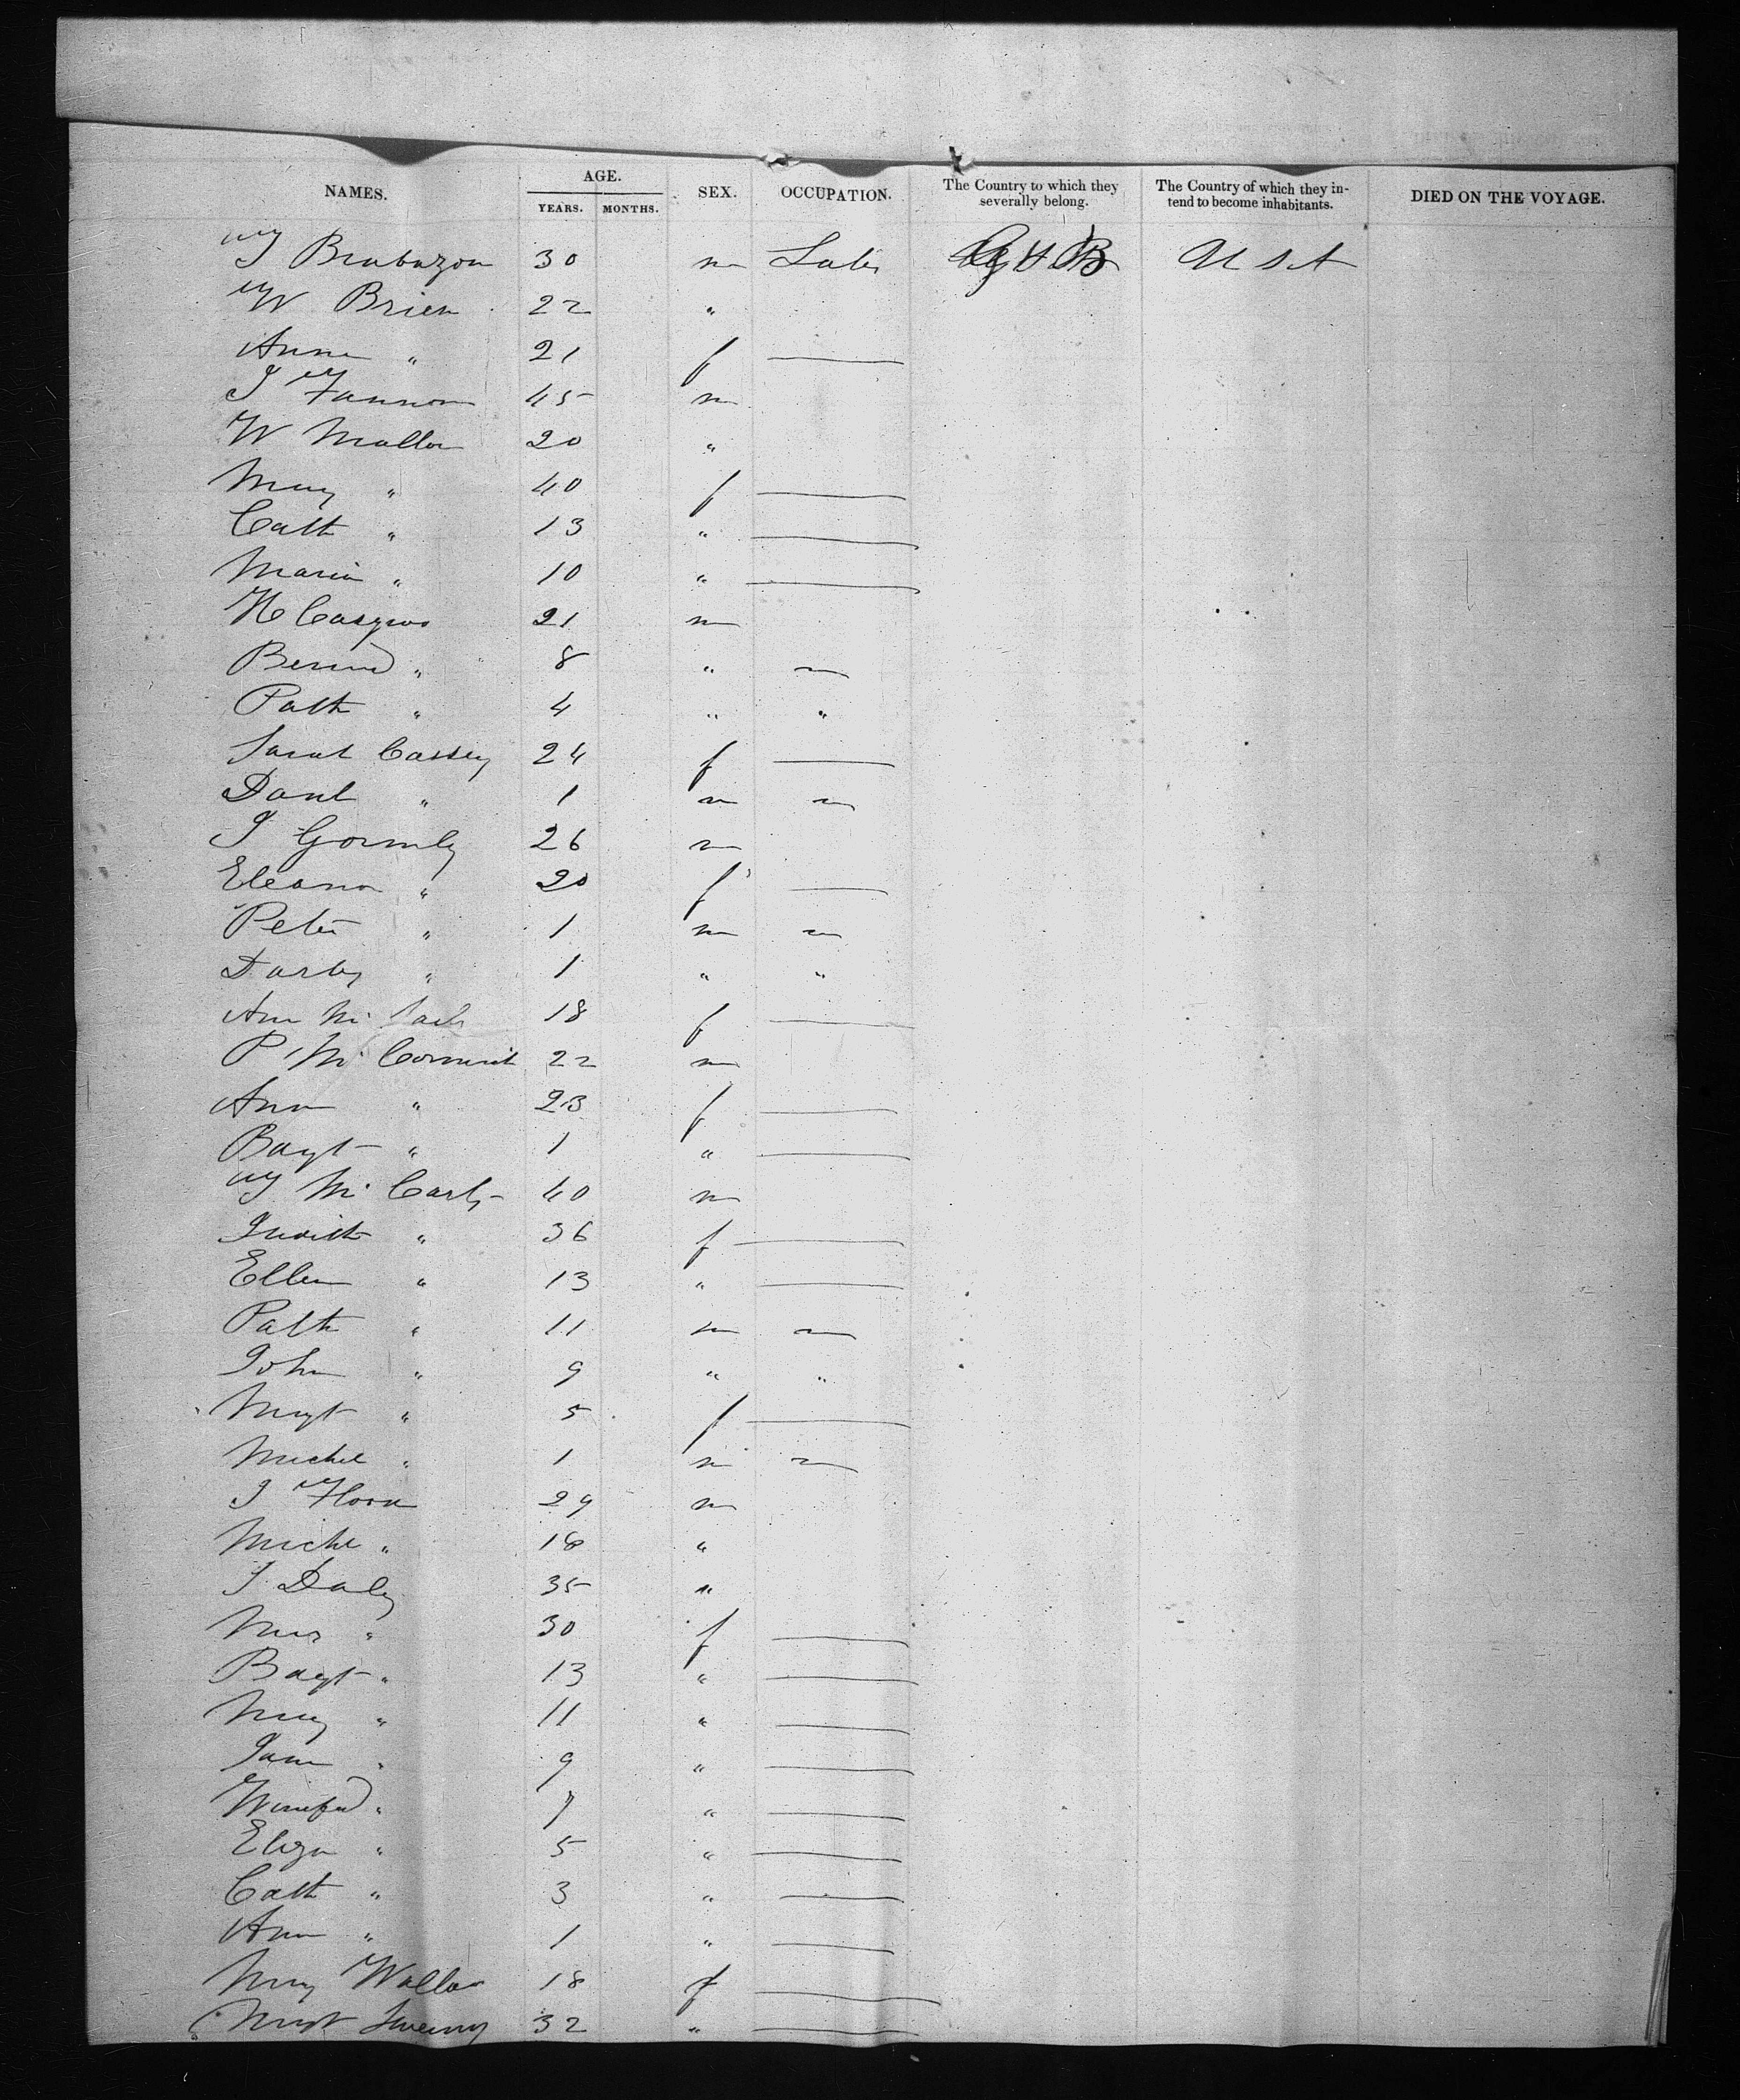 NAMES. AGE. SEX. OCCUPATION. The Country to which they severally belong. The Country of which they intend to become inhabitants. DIED ON THE VOYAGE.
YEARS. MONTHS.
Brabazon 30 m Labr G B U S A
W Brien 22 "
Anne " 21 f
J Fannon 45 m
W Mallon 20 "
Mary " 40 f
Cath " 13 "
Maria " 10 "
H 21 m
Bernd " 8 " "
Patk " 4 " "
Sarah Cassey 24 f
Danl " 1 m
J Gormly 26 m
Eleanor " 20 f
Peter " 1 m
Darby " 1 " "
Ann Mc 18 f
P McCormick 22 m
Ann " 23 f
Bayt " 1 "
McCarty 40 m
Judith " 36 f
Ellen " 13 "
Patk " 11 m
John " 9 " "
Magt " 5 f
Michl " 1 m
J Horan 29 m
Michl " 18 "
J Daly 35 "
Mary " 30 f
Bayt " 13 "
Mary " 11 "
Jane " 9 "
Winifred " 7 "
Eliza " 5 "
Cath " 3 "
Ann " 1 "
Mary Wallace 18 f
Magt Sweeny 32 "